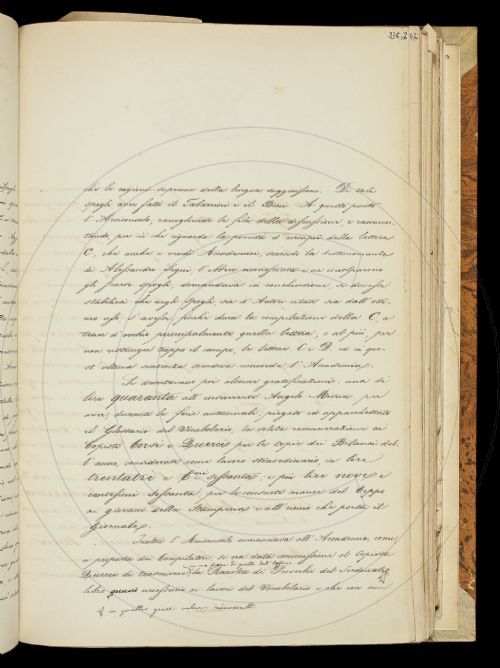 236,242
che la ragione suprema della lingua suggerissono. Di tali
spogli aver fatti il Tabarrini e il Bresi. A questo punto
l'Arciconsolo, raccogliendo le fila della discussione, e rammen-
tando per ciò che riguarda la povertà d'esempi della lettera
C, che anche i vecchi Accademici, secondo la testimonianza
di Alessandro Segni, l'
gli spogli, domandava in conclusione, se dovesse
stabilirsi che negli Spogli sia d'Autori citati sia dall'otti-
mo uso s'avesse, finchè dura la compilazione della C, a
tener d'occhio principalmente quella lettera; o al più, per
non restringer troppo il campo, le lettere C e D. ed in que-
st'ultima sentenza rendeva concorde l'Accademia.
Si decretavano poi alcune gratificazioni; una di
lire quaranta all'inserviente Angelo Mariani per
aver, durante le ferie autunnali, piegato ed appacchettato
il Glossario del Vocabolario, la solita remunerazione ai
Copisti Corsi e Quercio per la copia dei Bilanci del-
l'anno, considerata come lavoro straordinario, in lire
trentatre e C.mi sessanta; e più lire nove e
centesimi sessanta per le consuete mance del Ceppo
ai giovani della Stamperia e all'uomo che porta il
Giornale.
Inoltre l'Arciconsolo annunciava all'Accademia, come
a proposta dei Compilatori si era data commissione al Copista
Quercio di trascrivere la Raccolta di Proverbi del Serdonati,
libro necessario ai lavori del Vocabolario e che con
in quattro grossi volumi manoscritti